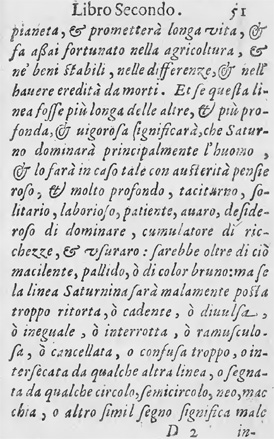 Libro Secondo. 51
pianeta, & prometterà longa vita, &
fa aßai fortunato nella agricoltura, &
ne' beni stabili, nelle differenze, & nell'
hauere eredità da morti. Et se questa li-
nea fosse più longa delle altre, & più pro-
fonda, & uigorosa significarà, che Satur-
no dominarà principalmente l'huomo,
& lo farà in caso tale con austerità pensie
roso, & molto profondo, taciturno, so-
litario, laborioso, patiente, auaro, deside-
roso di dominare, cumulatore di ric-
chezze, & vsuraro: sarebbe oltre di ciò
macilente, pallido, ò di color bruno: ma se
la linea Saturnina sarà malamente posta
troppo ritorta, ò cadente, ò diuulsa,
ò ineguale, ò interrotta, ò ramusculo-
sa, ò cancellata, o confusa troppo, o in-
tersecata da qualche altra linea, o segna-
ta da qualche circolo, semicircolo, neo, mac
chia, o altro simil segno significa male
D 2 in-